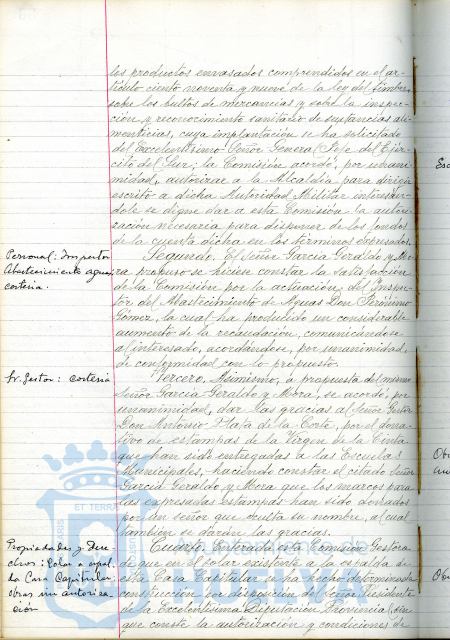 los productos envasados comprendidos en el ar-
tículo ciento noventa y nueve de la ley del timbre
sobre los bultos de mercancías y sobre la inspec-
ción y reconocimiento sanitario de sustancias ali-
menticias, cuya implantación se ha solicitado
del Excelentísimo Señor General Jefe del Ejér-
cito del Sur, la Comisión acordó, por unani-
midad, autorizar a la Alcaldía para dirigir
escrito a dicha Autoridad Militar interesán-
dole se digne dar a esta Comisión la autori-
zación necesaria para disponer de los fondos
de la cuenta dicha en los términos expresados.
Personal: Inspector
Abastecimiento aguas,
cortesía.
Segundo. El Señor García Geraldo y Mo-
ra propuso se hiciese constar la satisfacción
de la Comisión por la actuación del Inspec-
tor del Abastecimiento de Aguas Don Jerónimo
Gómez, la cual ha producido un considerable
aumento de la recaudación, comunicándose
al interesado, acordándose, por unanimidad,
de conformidad con lo propuesto.
Sr. Gestor: cortesía
Tercero. Asimismo, a propuesta del mismo
Señor García Geraldo y Mora, se acordó, por
unanimidad, dar las gracias al Señor Gestor
Don Antonio Plata de la Corte, por el dona-
tivo de estampas de la Virgen de la Cinta
que han sido entregadas a las Escuelas
Municipales, haciendo constar el citado Señor
García Geraldo y Mora que los marcos para
las expresadas estampas han sido donados
por un señor que oculta su nombre, al cual
también se darán las gracias.
Propiedades y Dere-
chos: Solar a espal-
da Casa Capitular
obras sin autoriza-
ción
Cuarto. Enterada esta Comisión Gestora
de que en el solar existente a la espalda de
esta Casa Capitular se ha hecho determinada
construcción por disposición del Señor Presidente
de la Excelentísima Diputación Provincial, sin
que conste la autorización y condiciones de